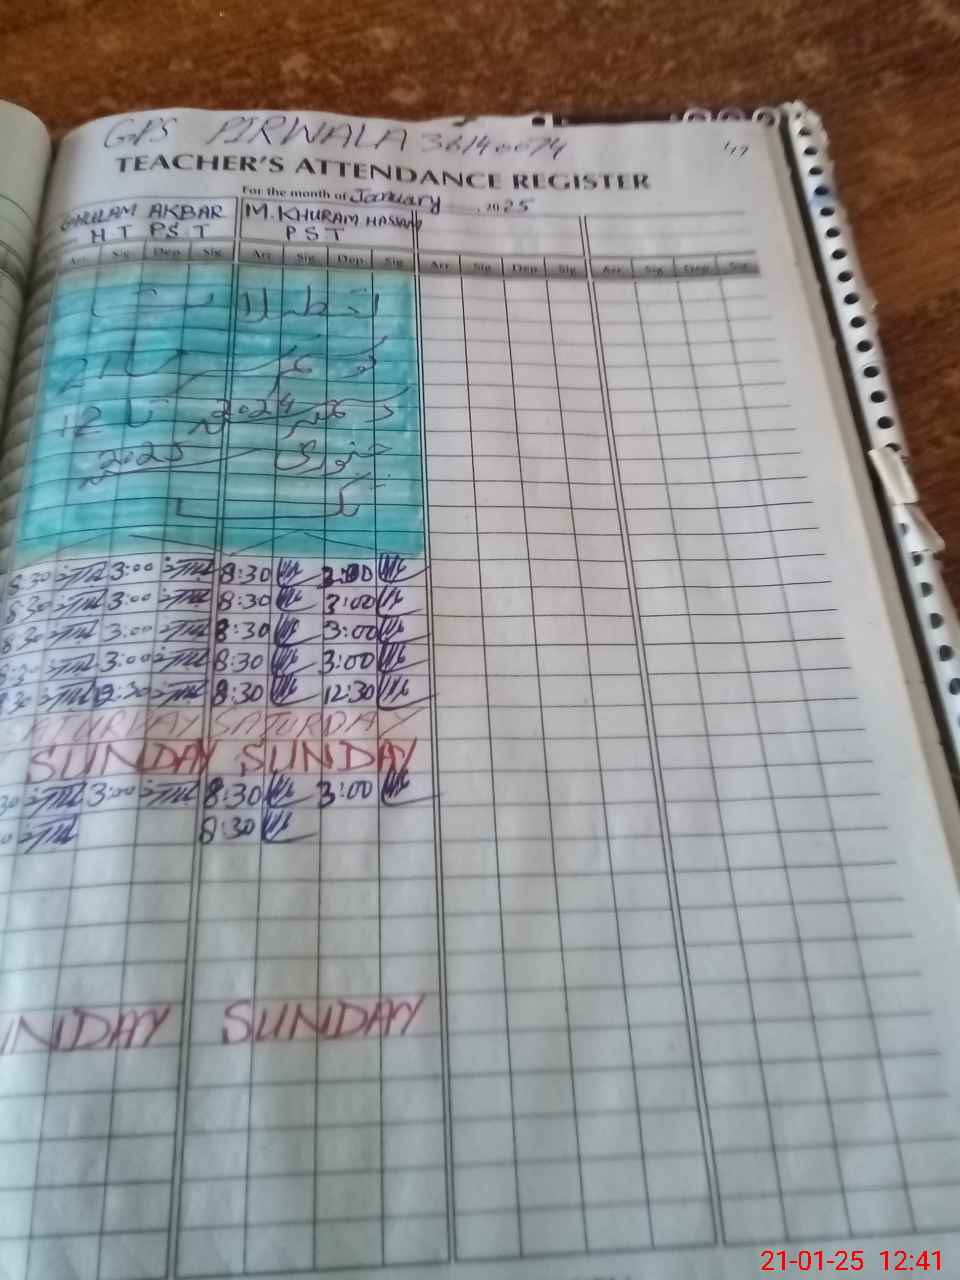 GPS PIRWALA 36140074
TEACHER'S ATTENDANCE REGISTER
For the month of January, 2025
GHULAM AKBAR M. KHURAM HASSAN
H T PST PST
Arr. Sig. Dep. Sig. Arr. Sig. Dep. Sig. Arr. Sig. Dep. Sig. Arr. Sig. Dep. Sig.
21
دسمبر 2024 تا 12
جنوری 2025
تک
8:30 3:00 8:30 3:00
8:30 3:00 8:30 3:00
8:30 3:00 8:30 3:00
8:30 3:00 8:30 3:00
8:30 12:30 8:30 12:30
SATURDAY SATURDAY
SUNDAY SUNDAY
30 3:00 8:30 3:00
0 8:30
UNDAY SUNDAY
21-01-25 12:41